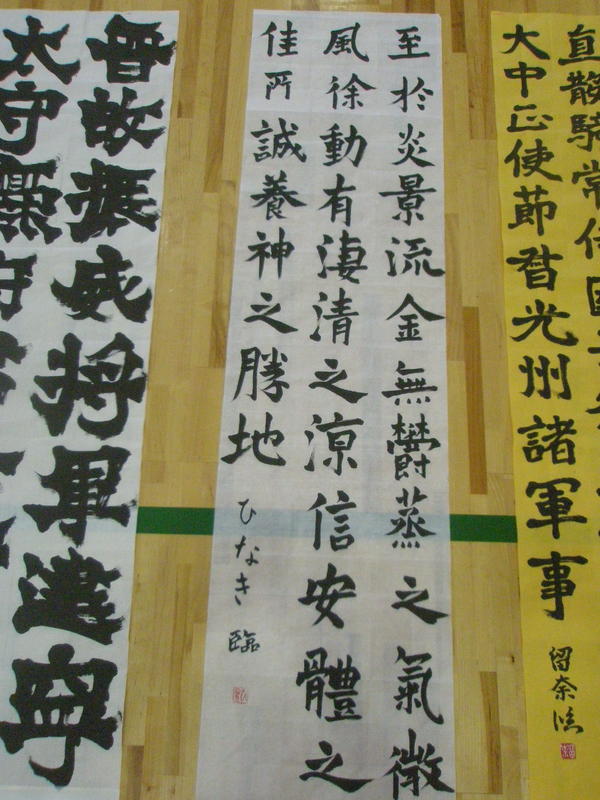 直散騎常侍國
大中正使節督光州諸軍事
留奈臨
至於炎景流金無鬱蒸之氣微
風徐動有淒清之涼信安體之
佳所誠養神之勝地
ひなき臨
晉故振威將軍建寧
太守爨府